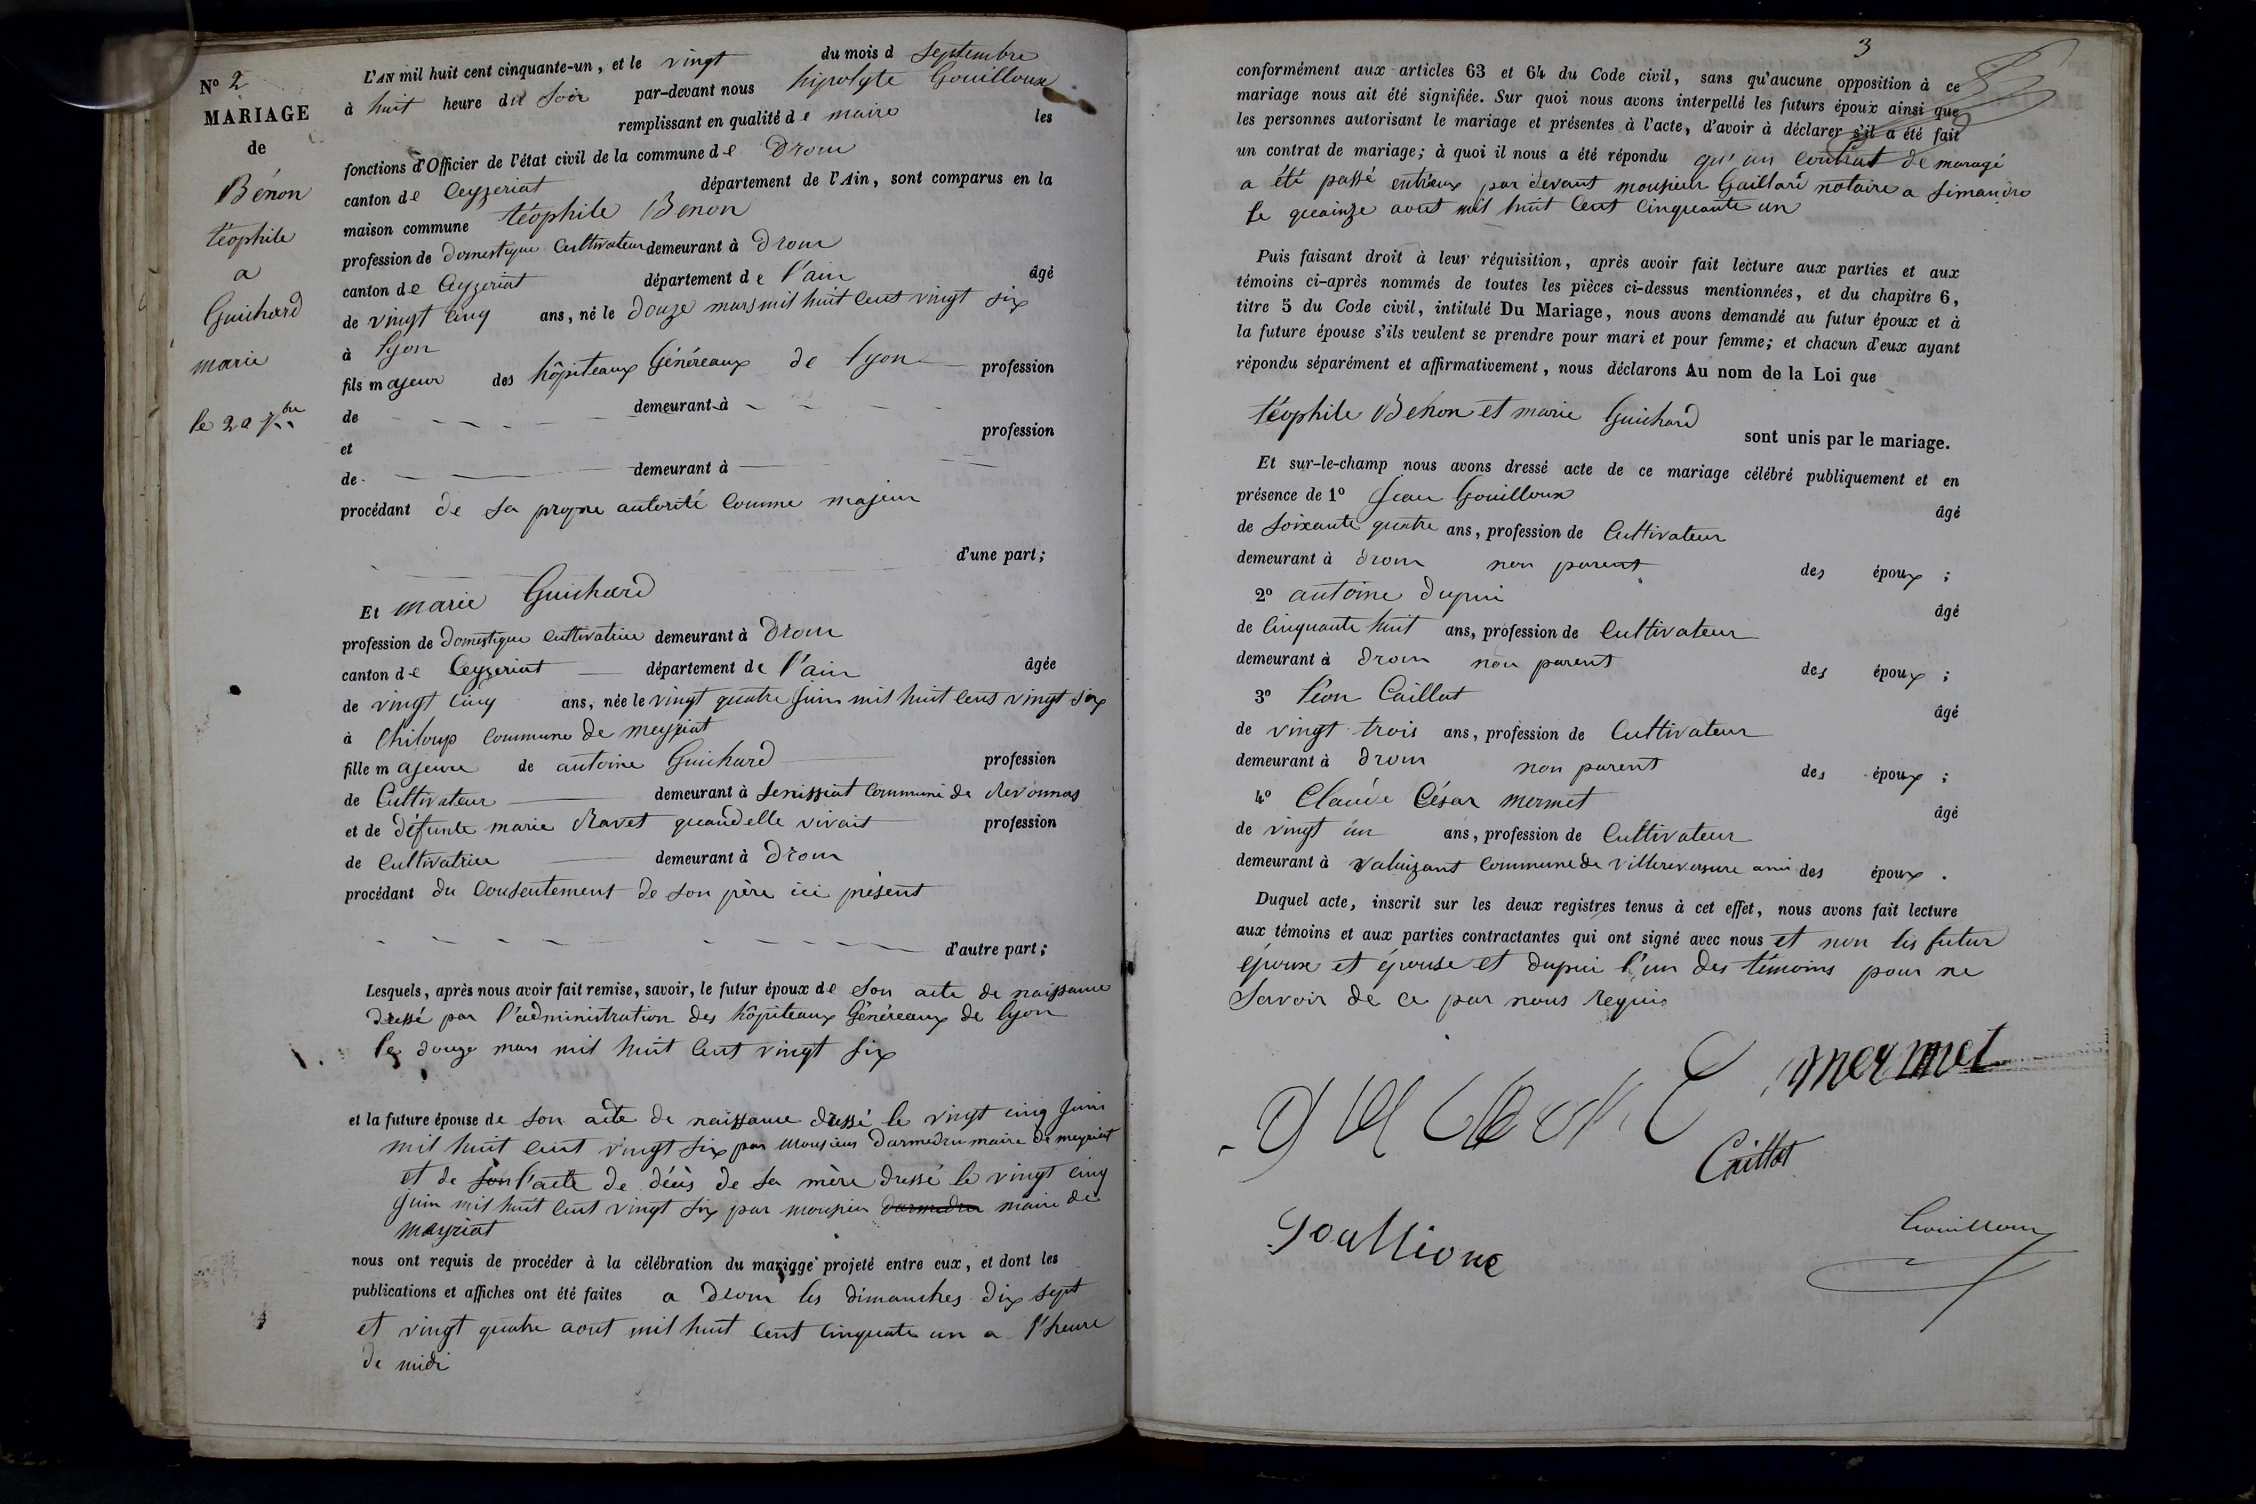 N° 2
MARIAGE
de
Bénon
téophile
a
Guichard
marie
le 20 7bre
L'AN mil huit cent cinquante-un, et le vingt du mois d septembre
à huit heure du soir par-devant nous hipolyte Gouilloux
remplissant en qualité de maire les
fonctions d'Officier de l'état civil de la commune de Drom
canton de Ceyzeriat département de l'Ain, sont comparus en la
maison commune téophile Benon
profession de domestique Cultivateur demeurant à Drom
canton de Ceyzeriat département de l'ain âgé
de vingt cinq ans, né le douze mars mil huit cent vingt six
à lyon
fils majeur des hôpiteaux Généreaux de lyon profession
de demeurant à
et profession
de demeurant à
procédant de sa propre autorité comme majeur
d'une part;
Et marie Guichard
profession de domestique cultivatrice demeurant à Drom
canton de Ceyzeriat département de l'ain âgée
de vingt cinq ans, née le vingt quatre juin mil huit cent vingt six
à Chiloup commune de meyriat
fille majeure de antoine Guichard profession
de Cultivateur demeurant à Senissiat commune de Revonnas
et de défunte marie Ravet quand elle vivait profession
de cultivatrice demeurant à Drom
procédant du consentement de son père ici présent
d'autre part;
Lesquels, après nous avoir fait remise, savoir, le futur époux de son acte de naissance
dressé par l'administration des hôpiteaux Généreaux de lyon
le douze mars mil huit cent vingt six
et la future épouse de son acte de naissance dressé le vingt cinq juin
mil huit cent vingt six par monsieur Darmedru maire de meyriat
et de son l'acte de décès de sa mère dressé le vingt cinq
juin mil huit cent vingt six par monsieur darmedru maire de
meyriat
nous ont requis de procéder à la célébration du mariage projeté entre eux, et dont les
publications et affiches ont été faites a Drom les dimanches dix sept
et vingt quatre aout mil huit cent cinquate un a l'heure
de midi
3
conformément aux articles 63 et 64 du Code civil, sans qu'aucune opposition à ce
mariage nous ait été signifiée. Sur quoi nous avons interpellé les futurs époux ainsi que
les personnes autorisant le mariage et présentes à l'acte, d'avoir à déclarer s'il a été fait
un contrat de mariage; à quoi il nous a été répondu qu'un contrat de maragé
a été passé entreux par devant monsieur Gaillard notaire a Simandre
le queinze aout mil huit cent cinquante un
Puis faisant droit à leur réquisition, après avoir fait lecture aux parties et aux
témoins ci-après nommés de toutes les pièces ci-dessus mentionnées, et du chapitre 6,
titre 5 du Code civil, intitulé Du Mariage, nous avons demandé au futur époux et à
la future épouse s'ils veulent se prendre pour mari et pour femme; et chacun d'eux ayant
répondu séparément et affirmativement, nous déclarons Au nom de la Loi que
téophile Benon et marie Guichard
sont unis par le mariage.
Et sur-le-champ nous avons dressé acte de ce mariage célébré publiquement et en
présence de 1° Jean Gouilloux âgé
de soixante quatre ans, profession de Cultivateur
demeurant à drom non parent des époux ;
2° antoine dupui âgé
de Cinquante huit ans, profession de Cultivateur
demeurant à Drom non parent des époux ;
3° léon Caillat âgé
de vingt trois ans, profession de Cultivateur
demeurant à Drom non parent des époux ;
4° Claude César mermet âgé
de vingt un ans, profession de Cultivateur
demeurant à valuizant commune de villereversure ami des époux .
Duquel acte, inscrit sur les deux registres tenus à cet effet, nous avons fait lecture
aux témoins et aux parties contractantes qui ont signé avec nous et non les futur
époux et épouse et dupui l'un des témoins pour ne
savoir de ce par nous requis
mermet
Caillat
Gouilloux